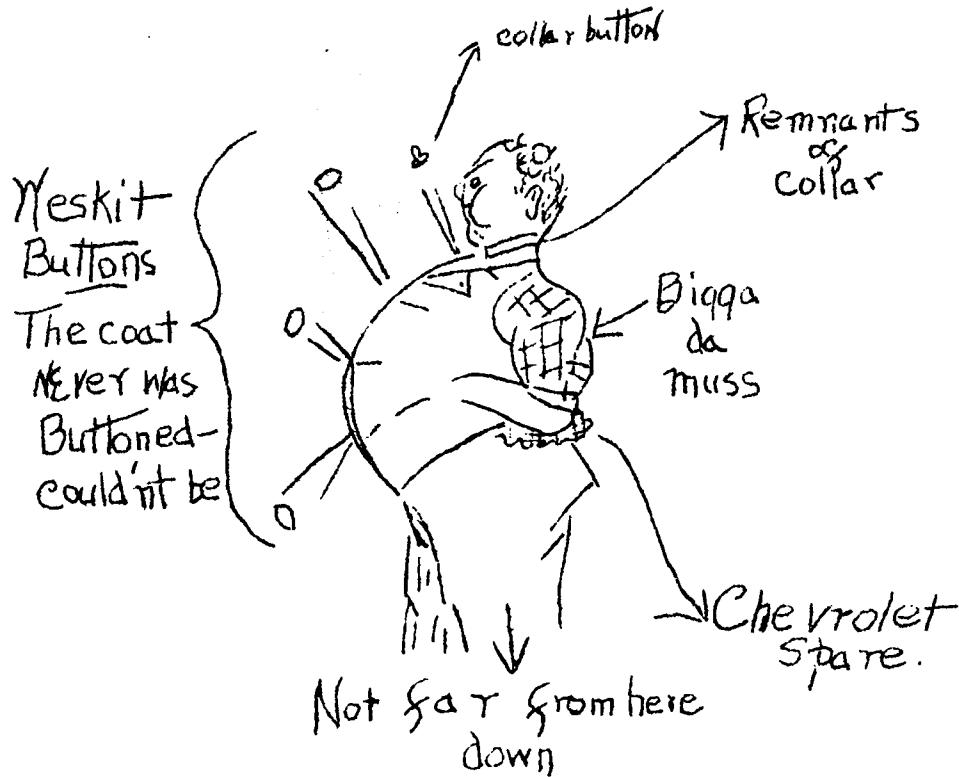 collar button
Remnants
of
collar
Weskit
Buttons
The coat
NEver was
Buttoned—
could'nt be
Bigga
da
muss
Chevrolet
spare.
Not far from here
down